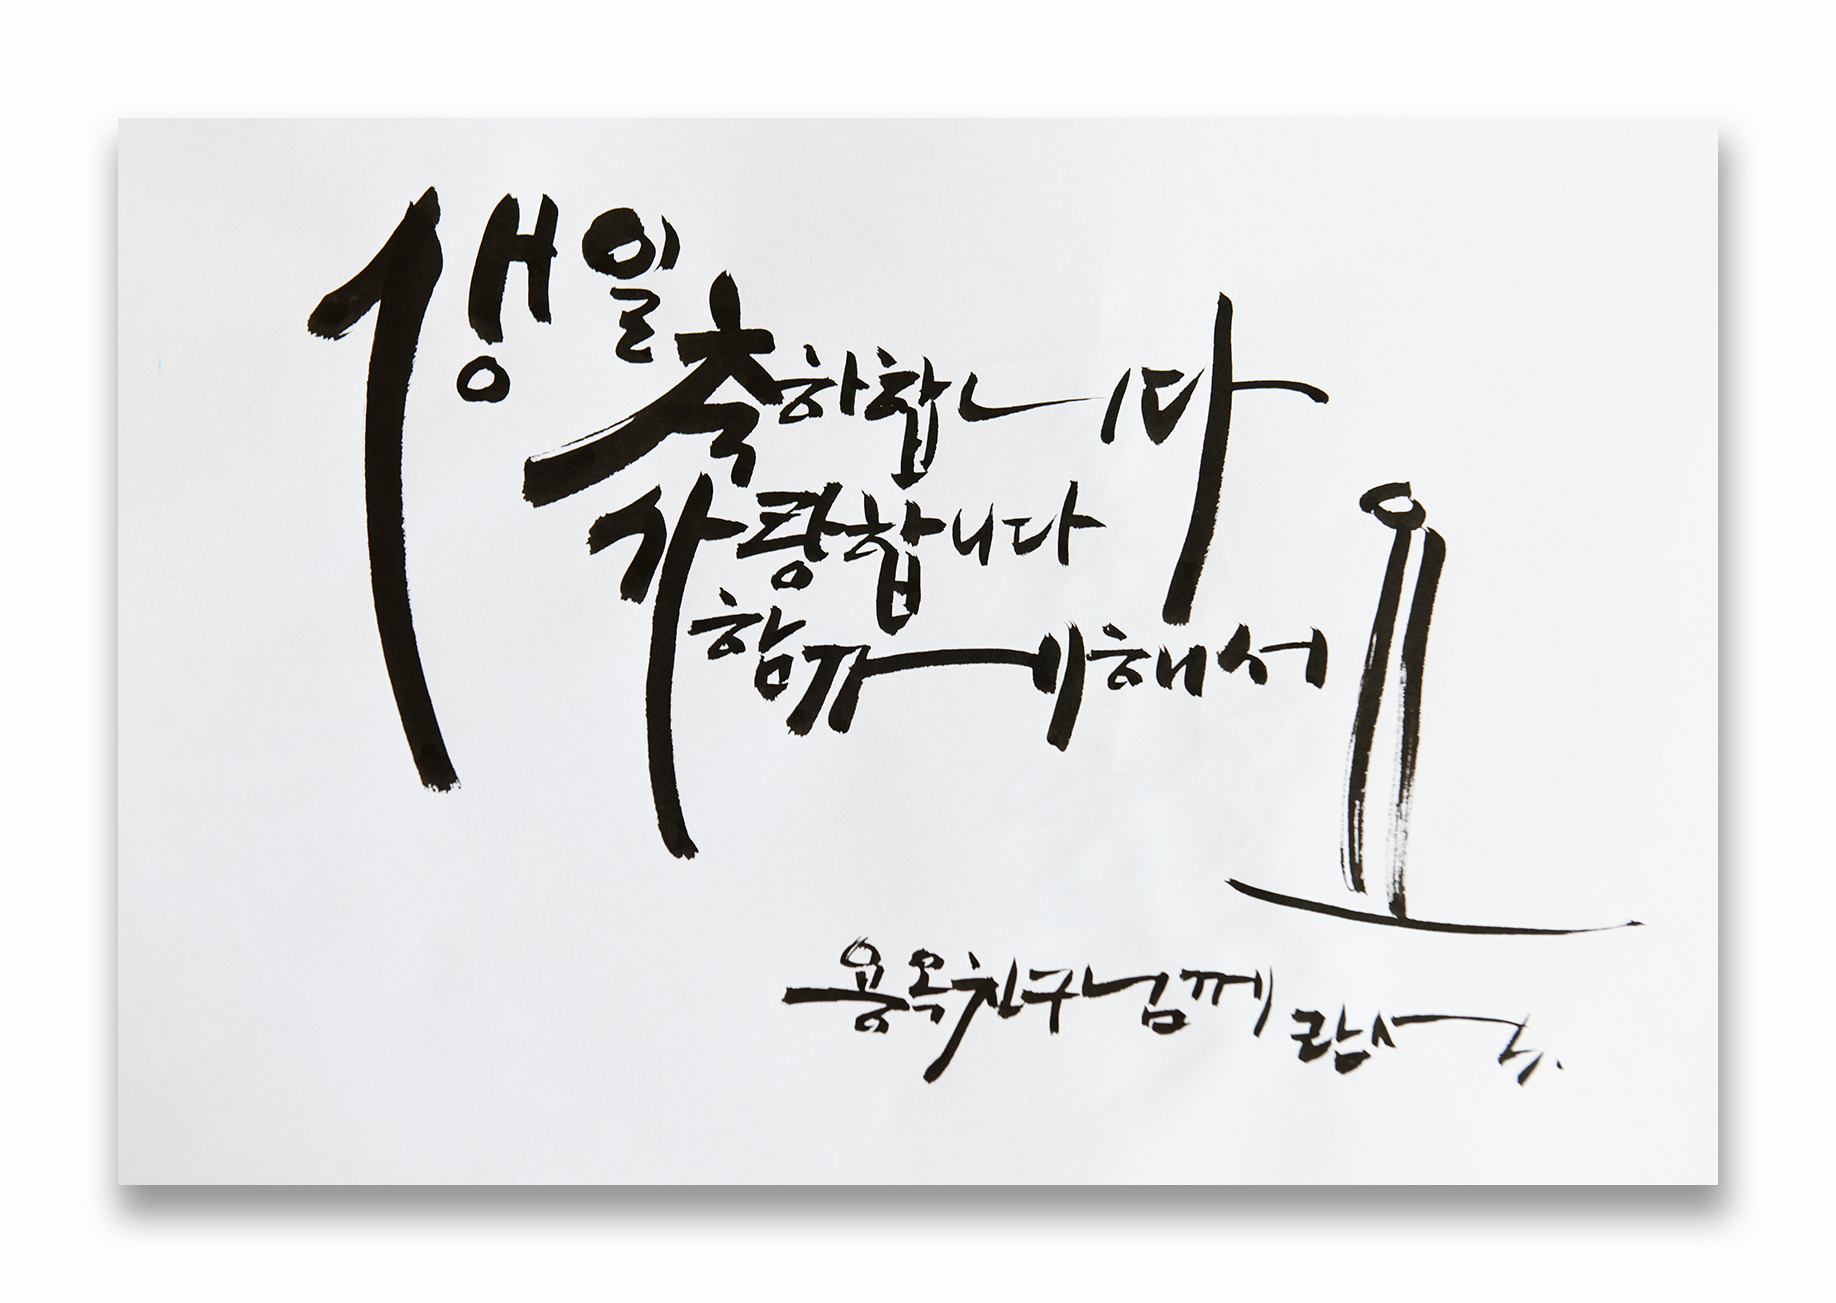 생일
축하합니다
사랑합니다
함께해서요
용옥친구님께